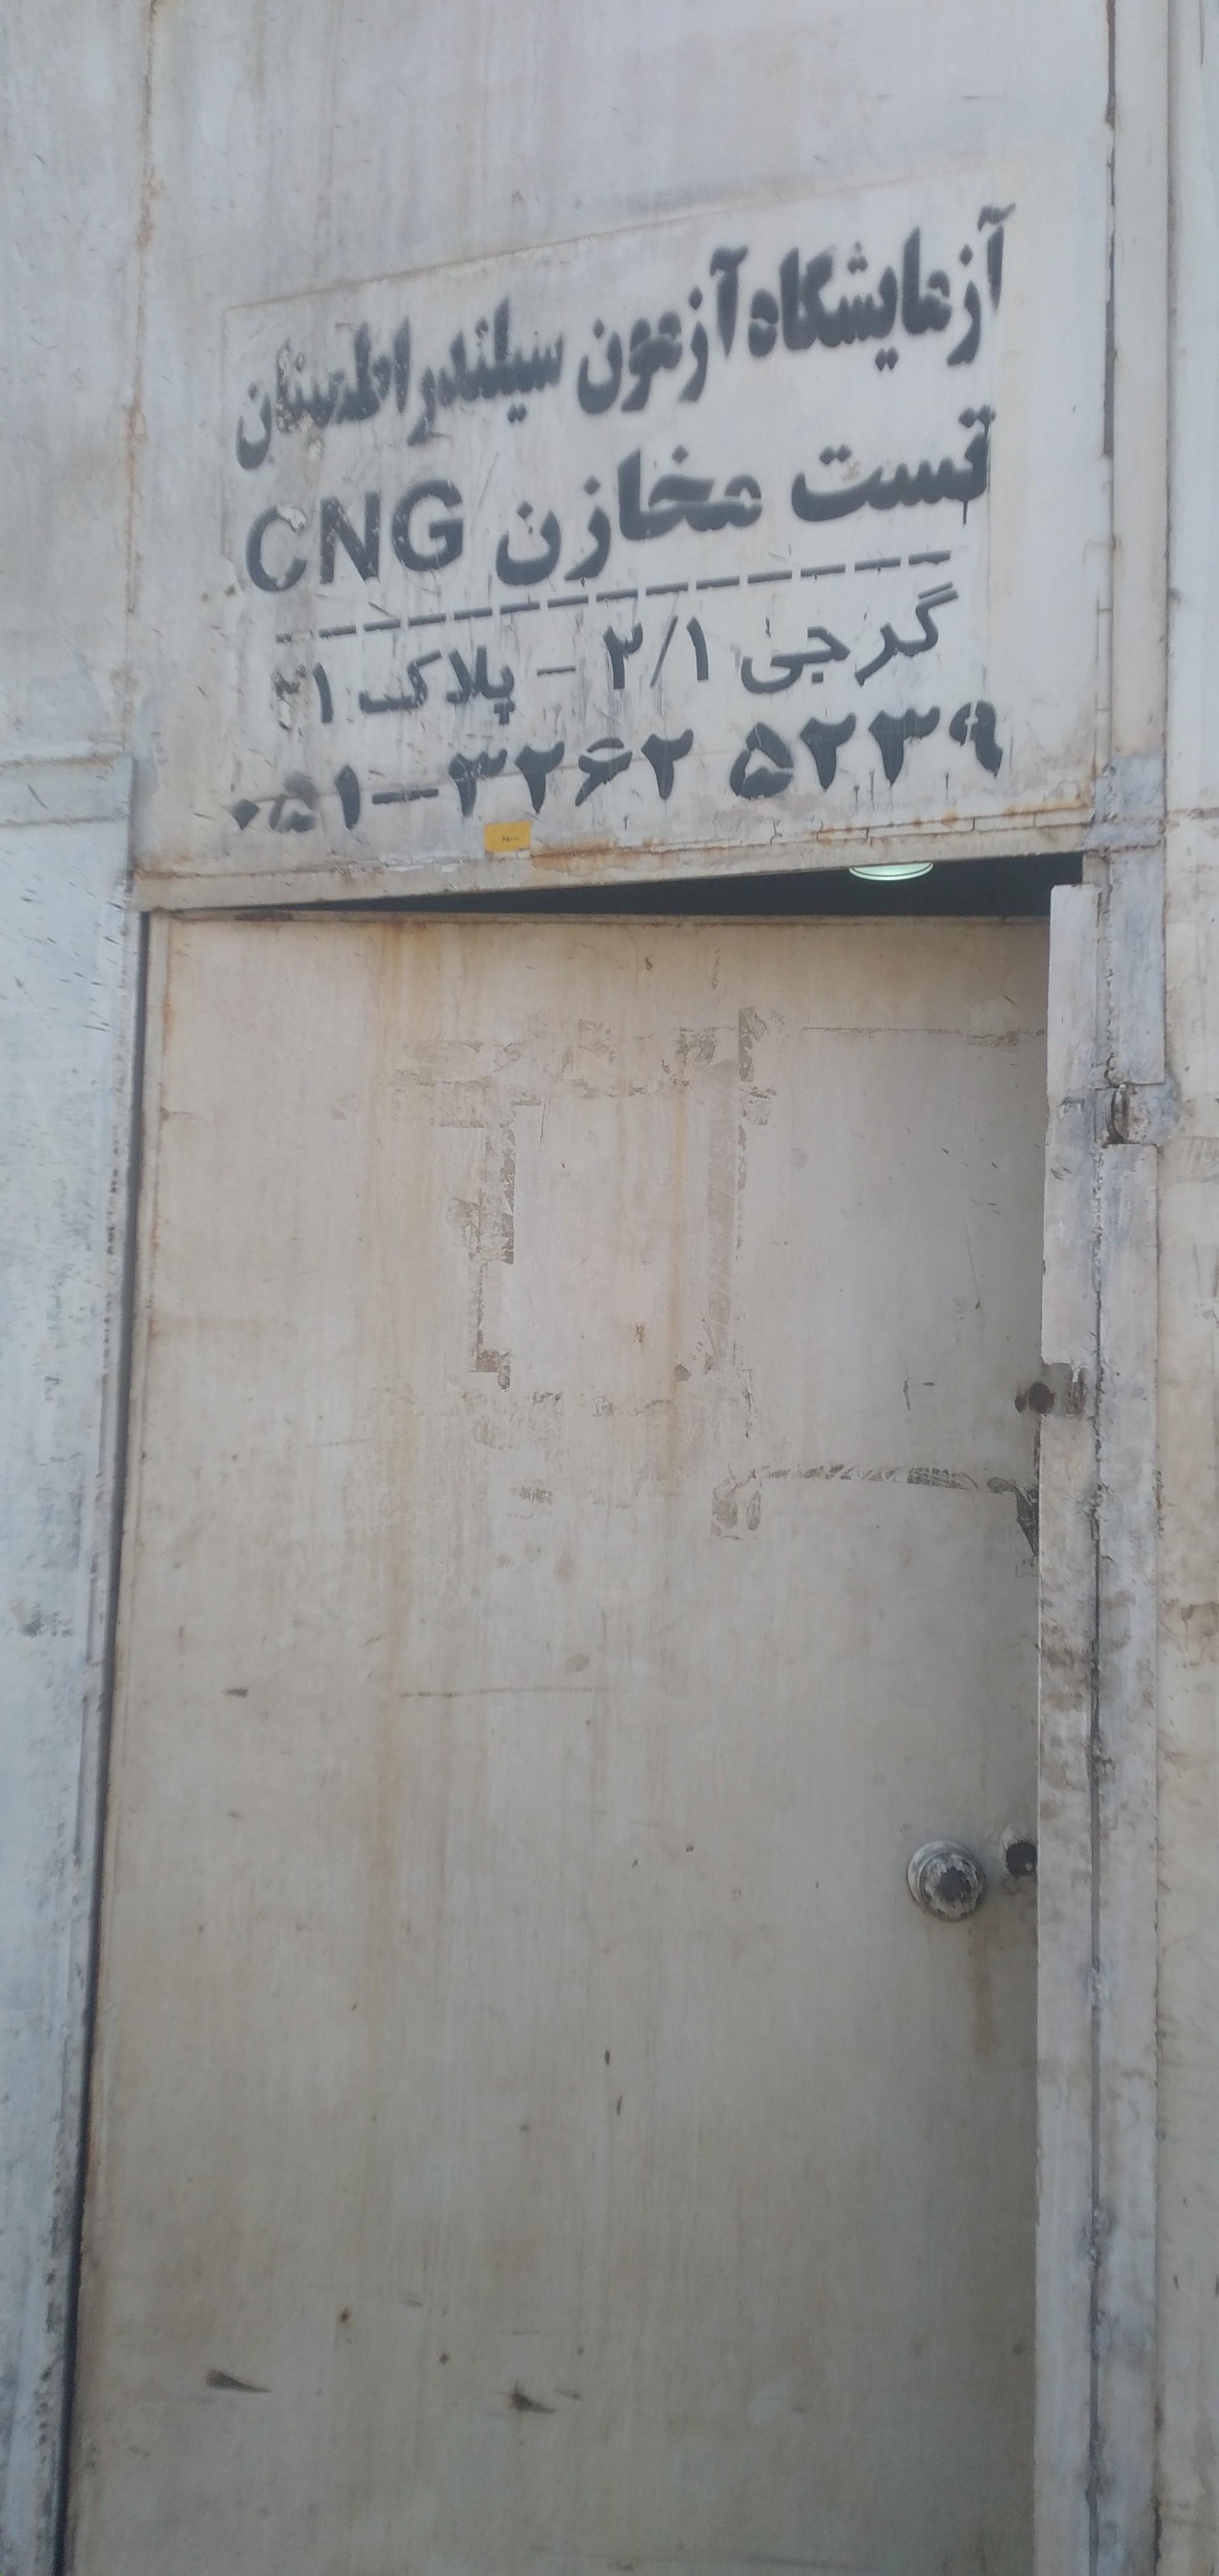 آزمایشگاه آزمون سیلندر اطمینان
تست مخازن CNG
گرجی ۳/۱ - پلاک
۰۵۱-۳۲۶۲ ۵۲۳۹